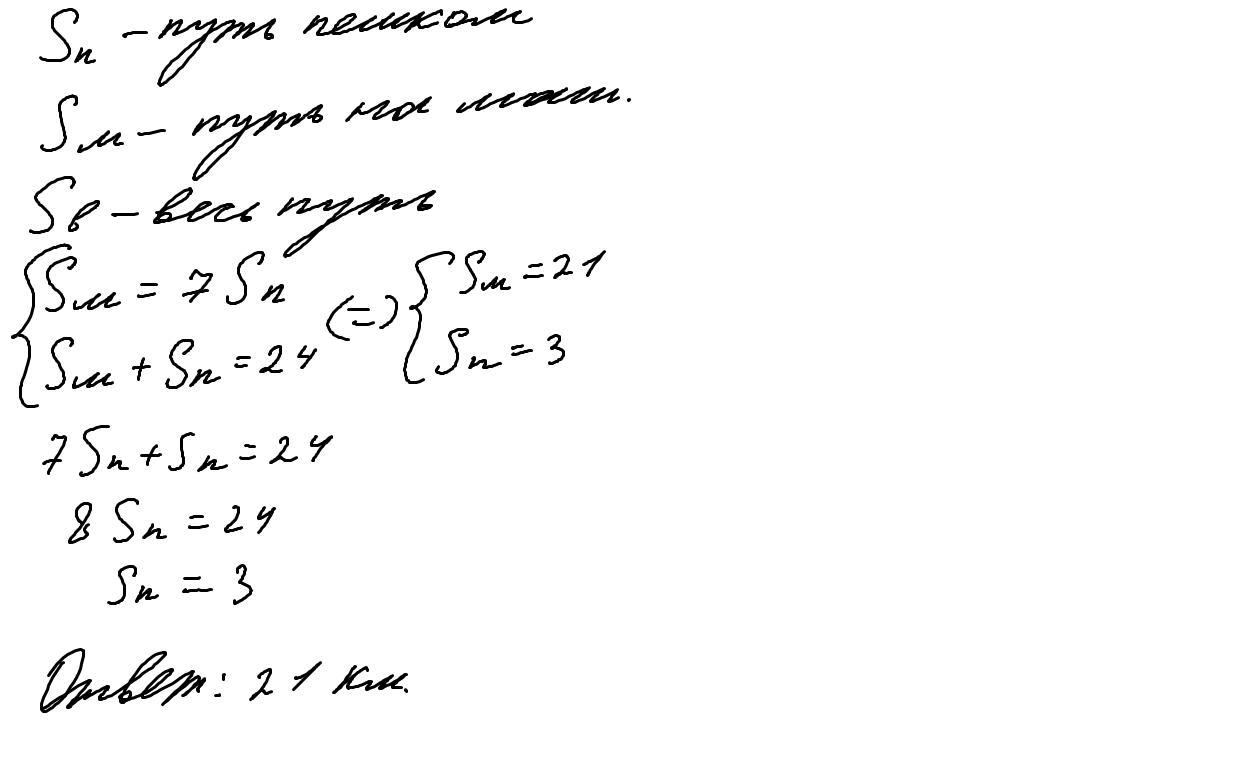 Sп – путь пешком
Sм – путь на маш.
Sв – весь путь
{ Sм = 7 Sп
{ Sм + Sп = 24
(=)
{ Sм = 21
{ Sп = 3
7 Sп + Sп = 24
8 Sп = 24
Sп = 3
Ответ: 21 км.